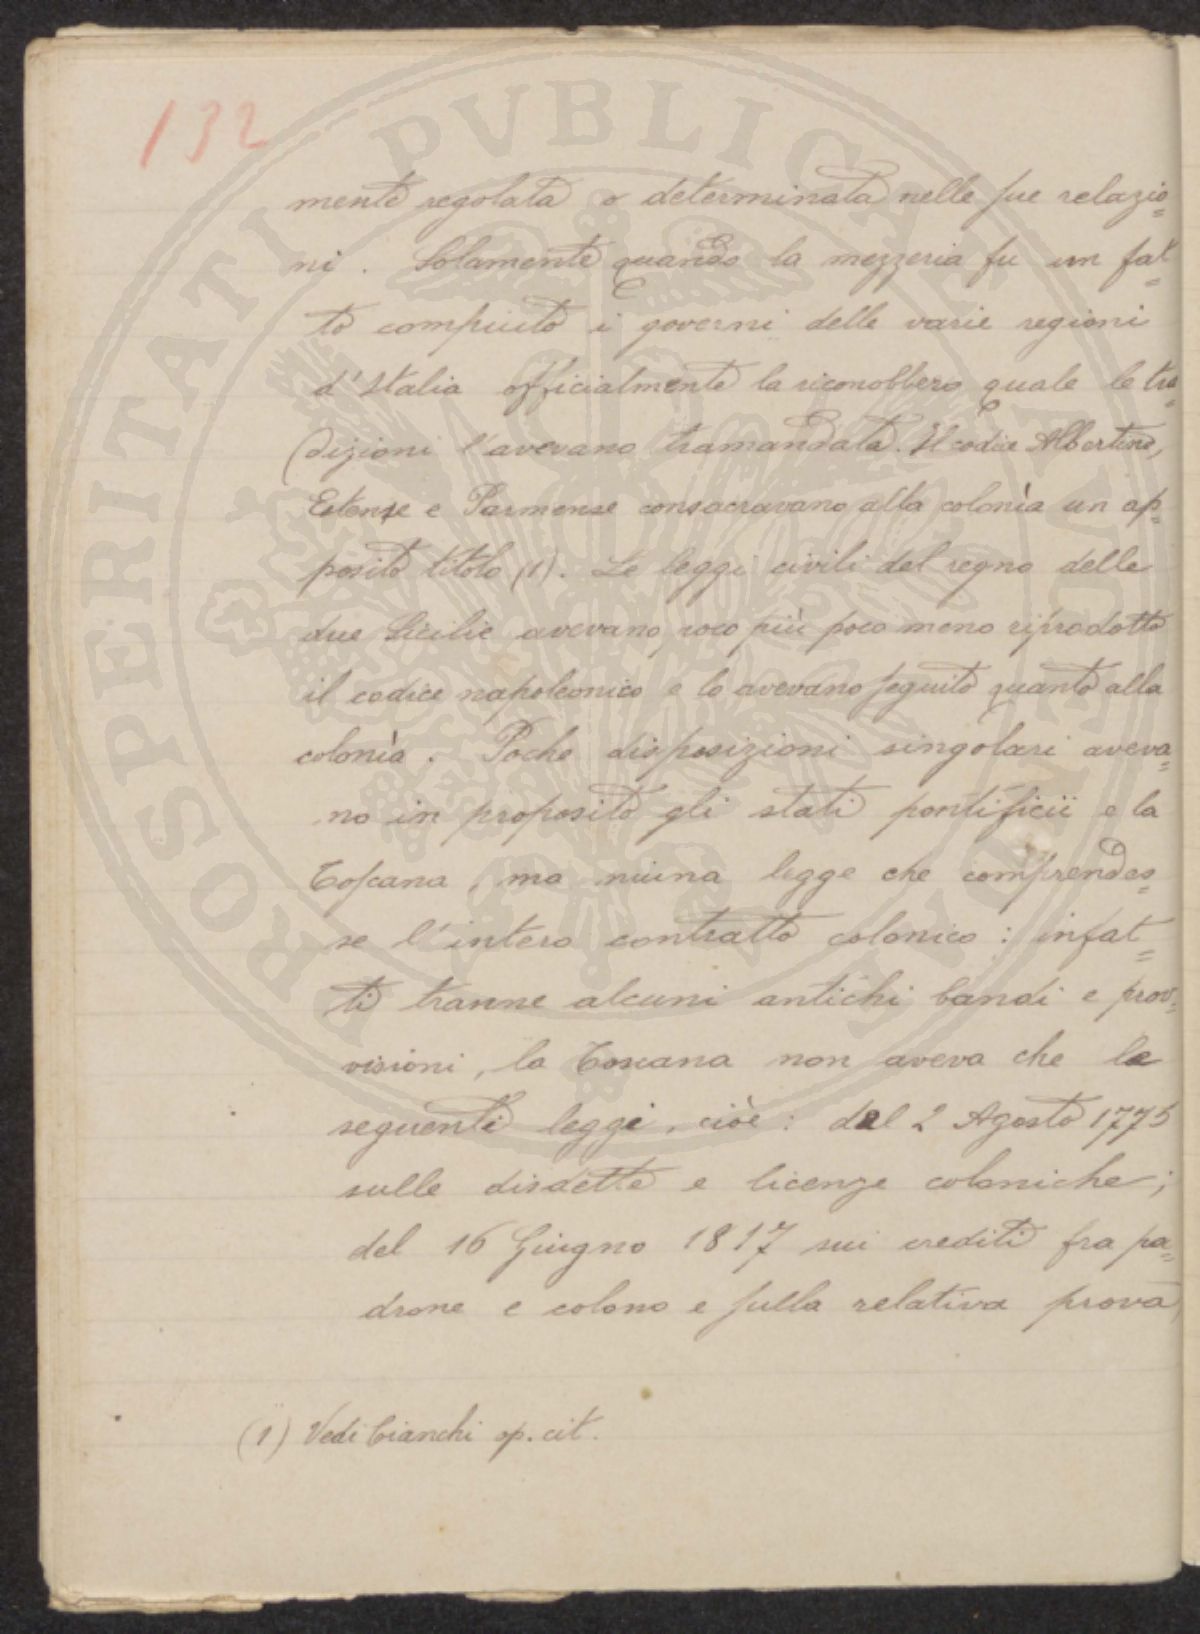 132
mente regolata o determinata nelle sue relazio=
ni. Solamente quando la mezzeria fu un fat=
to compiuto i governi delle varie regioni
d'Italia officialmente la riconobbero quale le tra=
dizioni l'avevano tramandata. Il codice Albertino,
Estense e Parmense consacravano alla colonìa un ap=
posito titolo (1). Le leggi civili del regno delle
due Sicilie avevano poco più poco meno riprodotto
il codice napoleonico e lo avevano seguito quanto alla
colonìa. Poche disposizioni singolari aveva=
no in proposito gli stati pontificii e la
Toscana, ma niuna legge che comprendes=
se l'intero contratto colonico: infat=
ti tranne alcuni antichi bandi e prov=
visioni, la Toscana non aveva che le
seguenti leggi, cióe: del 2 Agosto 1775
sulle disdette e licenze coloniche;
del 16 Giugno 1817 sui crediti fra pa=
drone e colono e sulla relativa prova,
(1) Vedi Bianchi op. cit.
PROSPERITATI PVBLICAE AVGENDAE